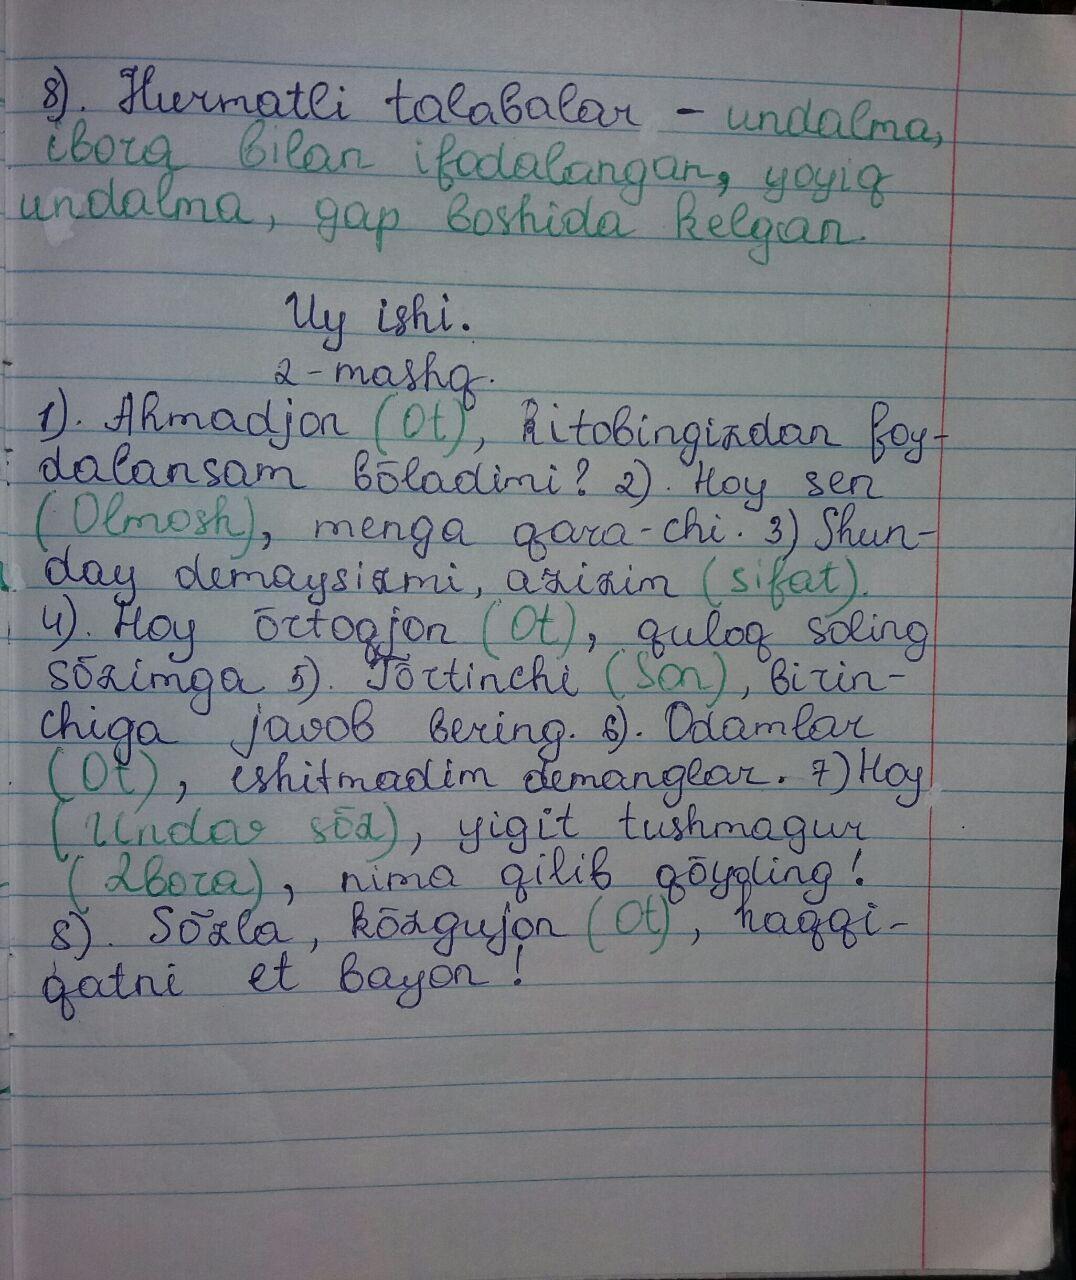 8). Hurmatli talabalar - undalma,
ibora bilan ifodalangan, yoyiq
undalma, gap boshida kelgan.
Uy ishi.
2-mashq.
1). Ahmadjon (Ot), kitobingizdan foy-
dalansam bōladimi? 2). Hoy sen
(Olmosh), menga qara-chi. 3) Shun-
day demaysizmi, azizim (sifat).
4). Hoy ōrtoqjon (Ot), quloq soling
sōzimga 5). Tōrtinchi (Son), birin-
chiga javob bering. 6). Odamlar
(Ot), eshitmadim demanglar. 7) Hoy
(Undov sōz), yigit tushmagur
(Ibora), nima qilib qōyding!
8). Sōzla, kōzgujon (Ot), haqqi-
qatni et bayon!